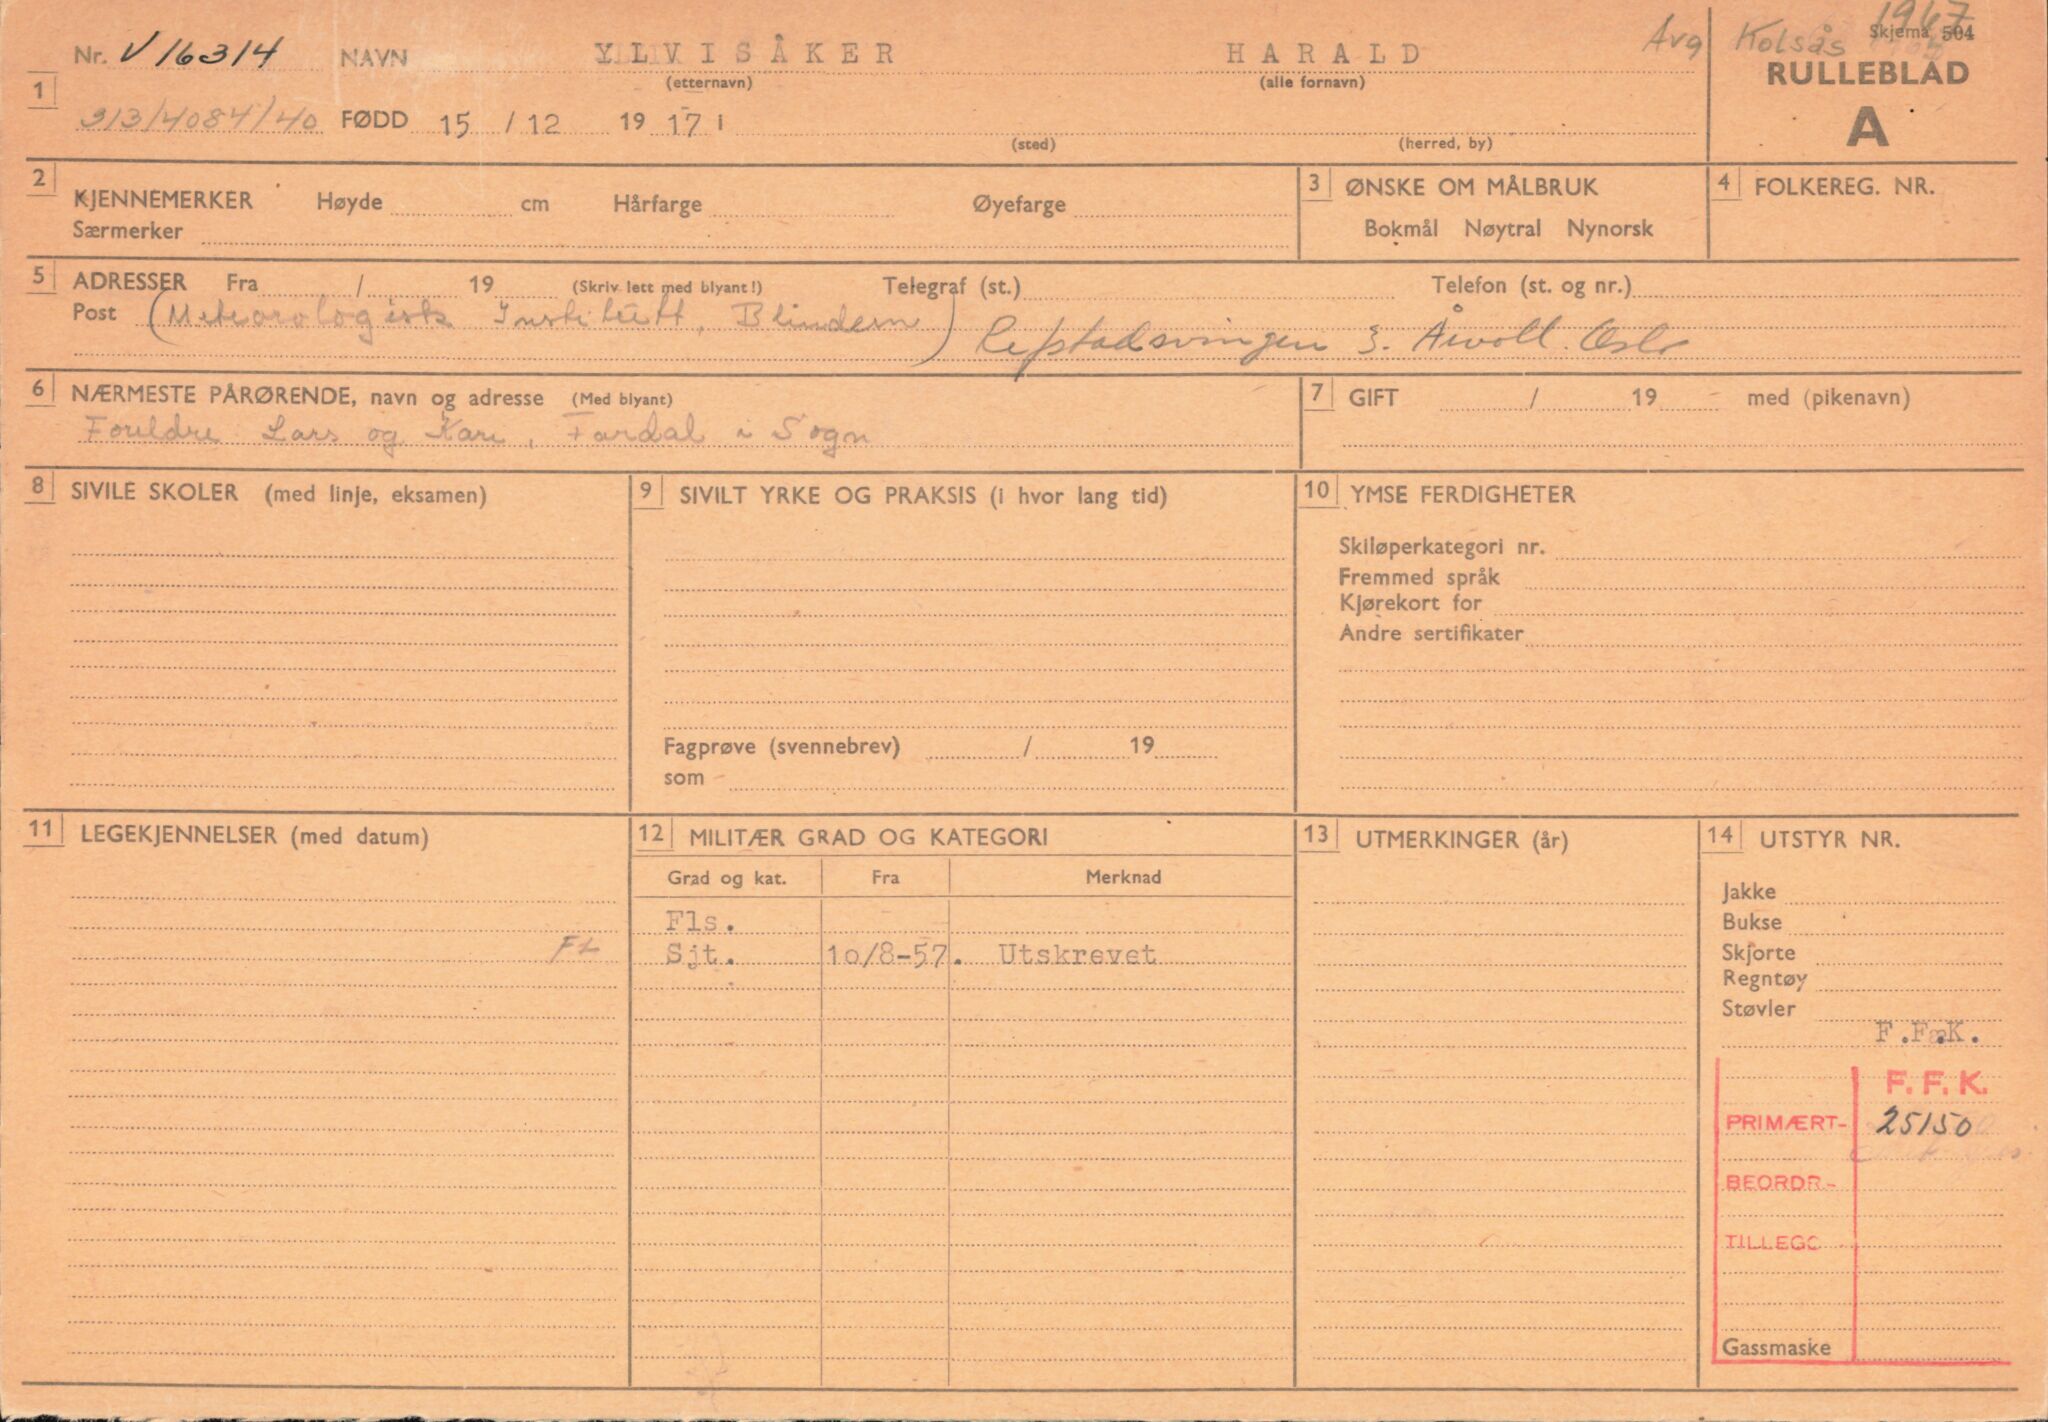 Nr. V 16314 NAVN YLVISÅKER HARALD Avg Kolsås 1967 Skjema 504
(etternavn) (alle fornavn) RULLEBLAD
1
313/4084/40 FØDD 15 / 12 19 17 A
(sted) (herred, by)
2 KJENNEMERKER Høyde cm Hårfarge Øyefarge
Særmerker
3 ØNSKE OM MÅLBRUK
Bokmål Nøytral Nynorsk
4 FOLKEREG. NR.
5 ADRESSER Fra / 19 (Skriv lett med blyant!) Telegraf (st.) Telefon (st. og nr.)
Post (Meteorologisk Institutt, Blindern) Refstadsvingen 3. Årvoll. Oslo
6 NÆRMESTE PÅRØRENDE, navn og adresse (Med blyant)
Foreldre Lars og Kari, Fardal i Sogn
7 GIFT / 19 med (pikenavn)
8 SIVILE SKOLER (med linje, eksamen)
9 SIVILT YRKE OG PRAKSIS (i hvor lang tid)
Fagprøve (svennebrev) / 19
som
10 YMSE FERDIGHETER
Skiløperkategori nr.
Fremmed språk
Kjørekort for
Andre sertifikater
11 LEGEKJENNELSER (med datum)
FL
12 MILITÆR GRAD OG KATEGORI
Grad og kat. Fra Merknad
Fls.
Sjt. 10/8-57. Utskrevet
13 UTMERKINGER (år)
14 UTSTYR NR.
Jakke
Bukse
Skjorte
Regntøy
Støvler
F.F.K.
F. F. K.
PRIMÆRT- 25150
BEORDR-
TILLEGG
Gassmaske